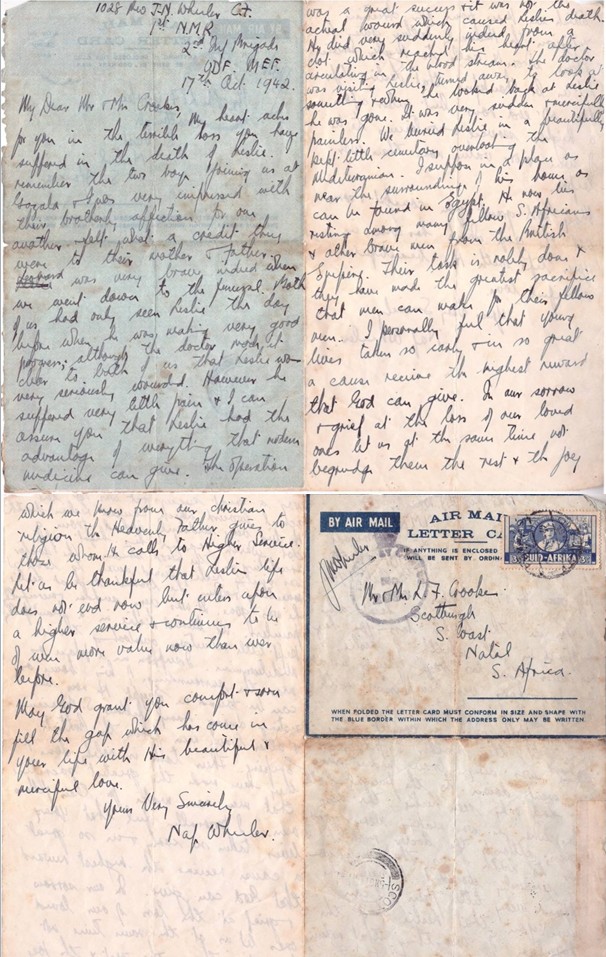 1028 Rev J.N. Wheeler Cf.
1st N.M.R.
2nd Inf Brigade
UDF. MEF.
17th Oct 1942.
My Dear Mr & Mrs Crookes,
My heart aches
for you in the terrible loss you have
suffered in the death of Leslie. I
remember the two boys joining us at
Gazala & I was very impressed with
their brotherly affection to one
another & felt what a credit they
were to their mother & father.
was very brave indeed when
we went down to the funeral. Both
of us had only seen Leslie the day
before when he was making very good
progress; although the doctor made it
clear to both of us that Leslie was
very seriously wounded. However he
suffered very little pain & I can
assure you that Leslie had the
advantage of everything that modern
medicine can give. The operation
was a great success & it was not the
actual wound which caused Leslie's death.
He died very suddenly indeed from a
clot which reached his heart after
circulating in the blood stream. The doctor
was visiting Leslie, turned away to look at
something & when he looked back at Leslie
he was gone. It was very sudden & mercifully
painless. We buried Leslie in a beautifully
kept little cemetery overlooking the
Mediterranean. I suppose in a place as
near the surroundings of his home as
can be found in Egypt. He now lies
resting among many fellow S. Africans
& other brave men from the British
Empire. Their task is nobly done &
they have made the greatest sacrifice
that men can make for their fellow
men. I personally feel that young
lives taken so early & in so great
a cause receive the highest reward
that God can give. In our sorrow
& grief at the loss of our loved
ones let us at the same time not
begrudge them the rest & the joy
which we know from our christian
religion the Heavenly Father gives to
those whom He calls to Higher Service.
Let us be thankful that Leslie's life
does not end now but enters upon
a higher service & continues to be
of even more value now than ever
before.
May God grant you comfort & soon
fill the gap which has come in
your life with His beautiful &
merciful love.
Yours Very Sincerely
Nap Wheeler.
BY AIR MAIL
AIR MAI
LETTER CA
IF ANYTHING IS ENCLOSED
WILL BE SENT BY ORDIN
SUID-AFRIKA
JNWheeler
Mr & Mrs L. F. Crookes
Scottburgh
S. Coast
Natal
S. Africa.
WHEN FOLDED THE LETTER CARD MUST CONFORM IN SIZE AND SHAPE WITH
THE BLUE BORDER WITHIN WHICH THE ADDRESS ONLY MAY BE WRITTEN.